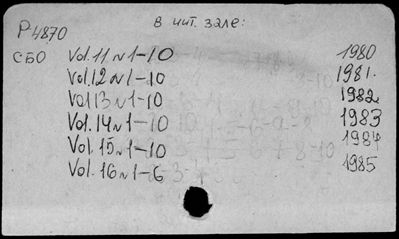 в чит. зале:
Р4870
СБО Vol. 11. N 1-10 1980
Vol. 12 N 1-10 1981.
Vol 13 N 1-10 1982
Vol. 14 N 1-10 1983
Vol. 15. N 1-10 1984
Vol. 16 N 1-6 1985